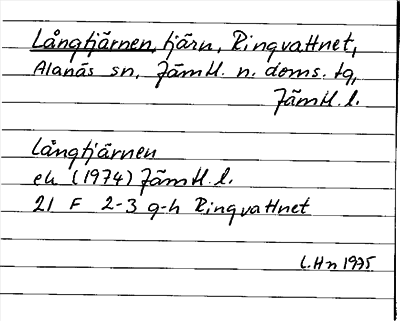 Långtjärnen, tjärn, Ringvattnet,
Alanäs sn, Jämtl. n. doms. tg,
Jämtl. l.
Långtjärnen
ek (1974) Jämtl. l.
21 F 2-3 g-h Ringvattnet
L. Hn 1975